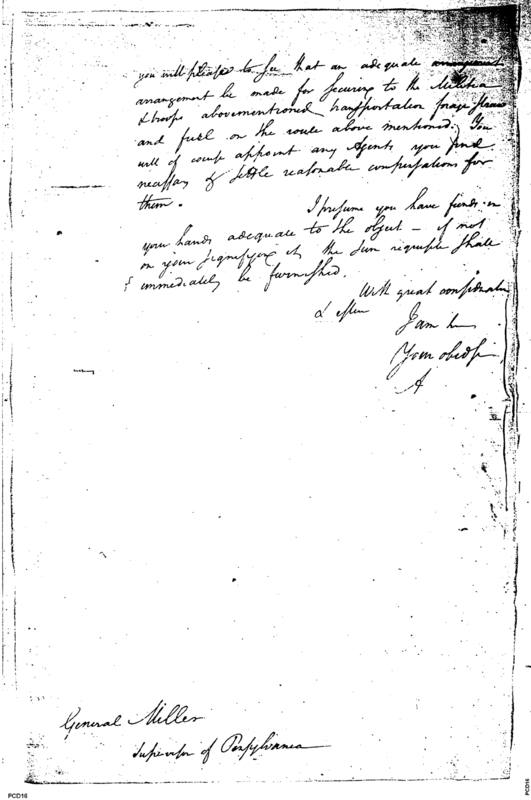 you will please to see that an adequate
arrangement be made for securing to the Militia
& troops abovementioned transportation forage straw
and fuel on the route above mentioned. You
will of course appoint any Agents you find
necessary & settle reasonable compensations for
them.
I presume you have funds in
your hands adequate to the object — if not
on your signifying it the sum requisite shall
immediately be furnished.
With great consideration
& esteem
I am
Your obed
A
General Miller
Supervisor of Pensylvania
PCD16
PCD16